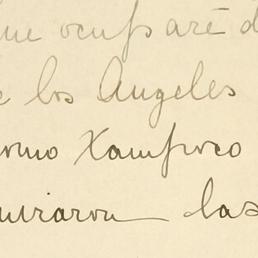 ocuparé d
e los Angeles
como Xampoco
miraron las